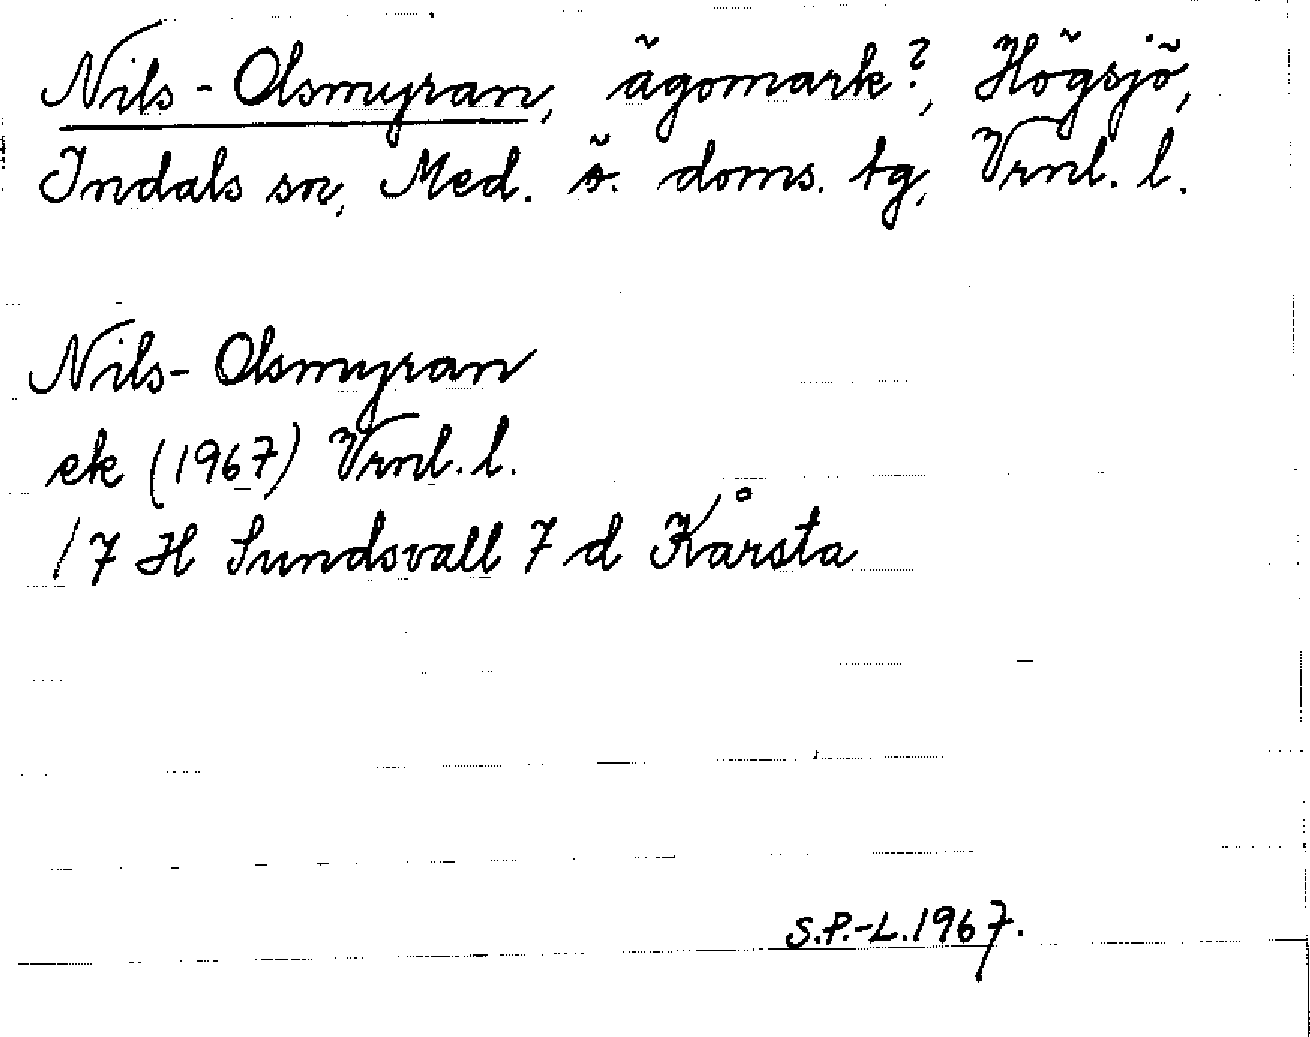 Nils-Olsmyran, ägomark?, Högsjö,
Indals sn, Med. ö. doms. tg, Vrnl. l.
Nils-Olsmyran
ek (1967) Vrnl. l.
17 H Sundsvall 7 d Kårsta
S.P.-L.1967.